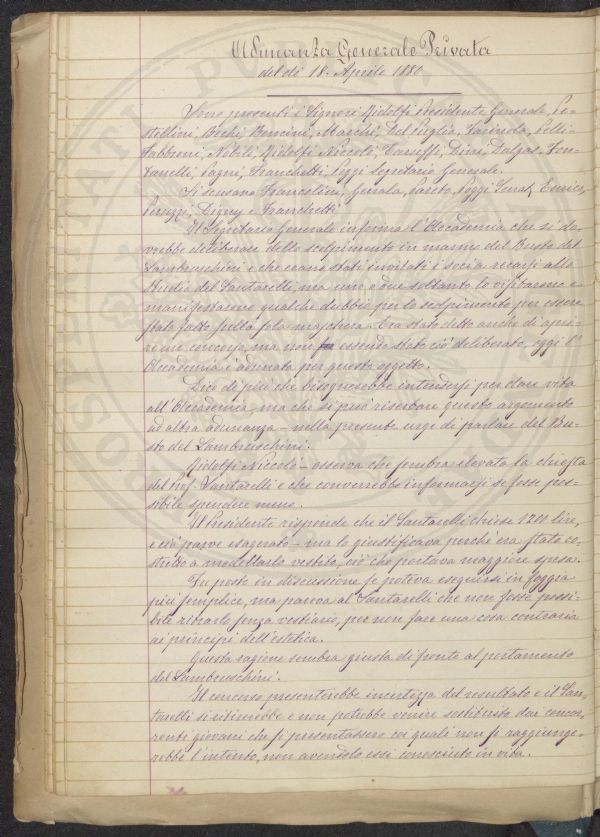 Adunanza Generale Privata
del dì 18. Aprile 1880
Sono presenti i Signori Ridolfi Presidente Generale, Pe-
stellini, Bechi Bencini, Marchi, Del Puglia, Farinola, Pelli-
Fabbroni, Nobili, Ridolfi Niccolò, Caruffi, Dini, Dalgas, Fon-
tanelli, Pagni, Franchetti, Poggi Segretario Generale.
Si scusano Francolini, Genala, Pareto, Poggi Senat, Enrico,
Peruzzi, Digny e Franchetti.
Il Segretario Generale informa l'Accademia che si do-
vrebbe deliberare dello scolpimento in marmo del Busto del
Lambruschini e che erano stati invitati i soci a recarsi allo
Studio del Santarelli, ma uno o due soltanto lo visitarono e
manifestarono qualche dubbio per lo scolpimento per essere
stato fatto sulla sola maschera. Era stato detto anche di apri-
re un concorso, ma non essendo stato ciò deliberato, oggi l'
Accademia è adunata per questo oggetto.
Dice di più che bisognerebbe intendersi per dare vita
all'Accademia, ma che si può riserbare questo argomento
ad altra adunanza – nella presente urge di parlare del Bu-
sto del Lambruschini.
Ridolfi Niccolò – osserva che sembra elevata la chiesta
del Prof. Santarelli e che converrebbe informarsi se fosse pos-
sibile spendere meno.
Il Presidente risponde che il Santarelli chiese 1200 lire,
e ciò parve esagerato – ma lo giustificava perché era stato co-
stretto a modellarlo vestito, ciò che portava maggiore spesa.
Fu posto in discussione se poteva eseguirsi in foggia
più semplice, ma pareva al Santarelli che non fosse possi-
bile ritrarlo senza vestiario, per non fare una cosa contraria
ai principi dell'estetica.
Questa ragione sembra giusta di fronte al portamento
del Lambruschini.
Il concorso presenterebbe incertezza del resultato e il San-
tarelli si ritirerebbe e non potrebbe venire sostituito dai concor-
renti giovani che si presentassero coi quali non si raggiunge-
rebbe l'intento, non avendolo essi conosciuto in vita.